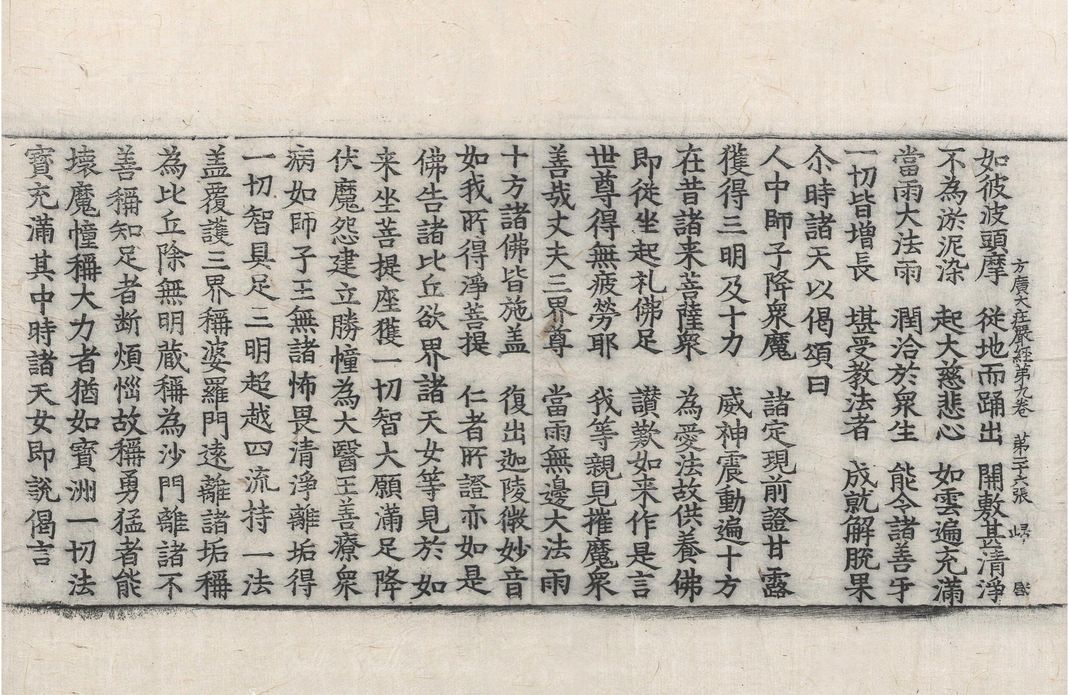 方廣大庄嚴經第九卷 第二十六張
如彼波頭摩 從地而踊出 開敷甚清淨
不為淤泥染 起大慈悲心 如雲遍充滿
當雨大法雨 潤洽於衆生 能令諸善牙
一切皆增長 堪受教法者 成就解脫果
尒時諸天以偈頌曰
人中師子降衆魔 諸定現前證甘露
獲得三明及十力 威神震動遍十方
在昔諸来菩薩衆 為愛法故供養佛
即從坐起礼佛足 讃歎如来作是言
世尊得無疲勞耶 我等親見摧魔衆
善哉丈夫三界尊 當雨無邊大法雨
十方諸佛皆施盖 復出迦陵微妙音
如我所得淨菩提 仁者所證亦如是
佛告諸比丘欲界諸天女等見於如
来坐菩提座獲一切智大願滿足降
伏魔怨建立勝幢為大醫王善療衆
病如師子王無諸怖畏清淨離垢得
一切智具足三明超越四流持一法
盖覆護三界稱婆羅門遠離諸垢稱
為比丘除無明蔵稱為沙門離諸不
善稱知足者断煩惱故稱勇猛者能
壞魔幢稱大力者猶如寶洲一切法
寶充滿其中時諸天女即說偈言